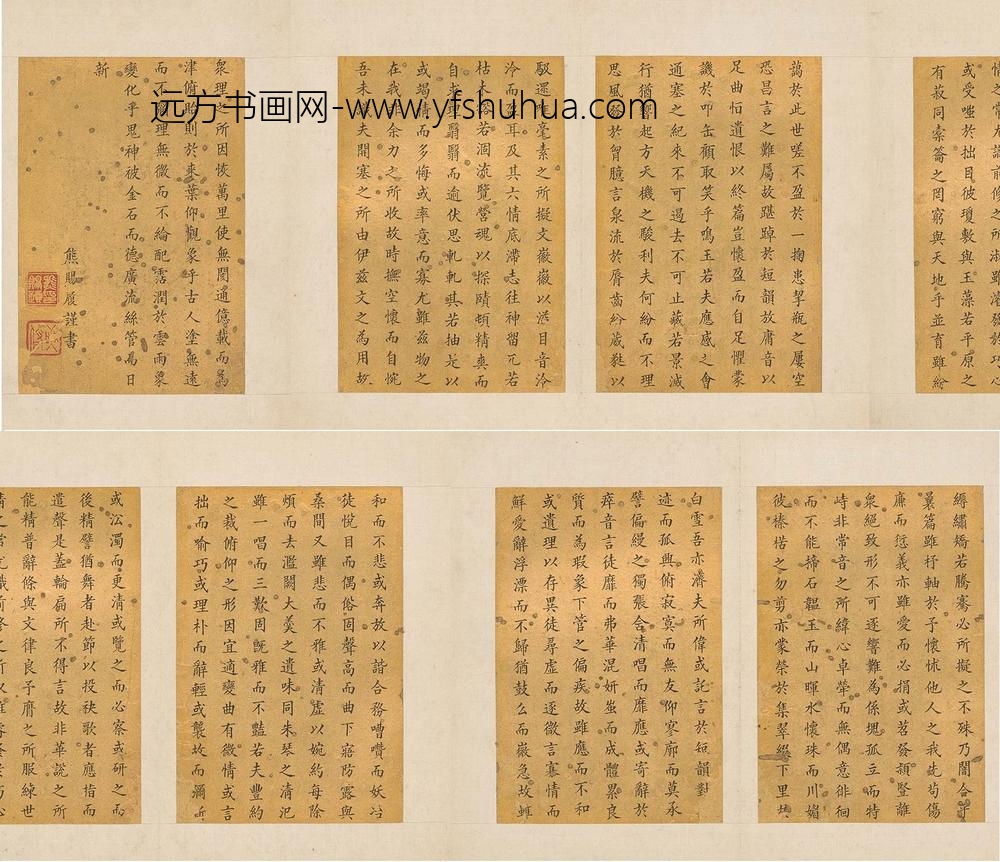 远方书画网-www.yfshuhua.com
情之常尤識前修之所淑雖濬發於巧心
或受嗤於拙目彼瓊敷與玉藻若平原之
有菽同橐籥之罔窮與天地乎並育雖紛
藹於此世嗟不盈於一掬患挈瓶之屢空
恐昌言之難屬故踸踔於短韻放庸音以
足曲怕遺恨以終篇豈懷盈而自足懼蒙
譏於叩缶顧取笑乎鳴玉若夫應感之會
通塞之紀來不可遏去不可止藏若景滅
行猶響起方天機之駿利夫何紛而不理
思風發於胷臆言泉流於脣齒紛葳蕤以
馺遝唯毫素之所擬文徽徽以溢目音泠
泠而盈耳及其六情底滯志往神留兀若
枯木豁若涸流覽營魂以探賾頓精爽而
自求理翳翳而逾伏思軋軋其若抽是以
或竭情而多悔或率意而寡尤雖茲物之
在我非余力之所收故時撫空懷而自惋
吾未識夫開塞之所由伊茲文之為用故
衆理之所因恢萬里使無閡通億載而為
津俯貽則於來葉仰觀象乎古人塗無遠
而不彌理無微而不綸配霑潤於雲雨象
變化乎鬼神被金石而德廣流絲管而日
新
熊賜履謹書
縟繡矯若騰騫必所擬之不殊乃闇合乎
曩篇雖杼軸於予懷怵他人之我先苟傷
廉而愆義亦雖愛而必捐或苕發穎豎離
衆絕致形不可逐響難為係塊孤立而特
峙非常音之所緯心卓犖而無偶意徘徊
而不能揥石韞玉而山暉水懷珠而川媚
彼榛楛之勿剪亦蒙榮於集翠綴下里於
白雪吾亦濟夫所偉或託言於短韻對
迹而孤興俯寂寞而無友仰寥廓而莫承
譬偏絃之獨張含清唱而靡應或寄辭於
瘁音言徒靡而弗華混妍蚩而成體累良
質而為瑕象下管之偏疾故雖應而不和
或遺理以存異徒尋虛而逐微言寡情而
鮮愛辭浮漂而不歸猶鼓么而徽急故雖
和而不悲或奔放以諧合務嘈囋而妖冶
徒悅目而偶俗固聲高而曲下寤防露與
桑間又雖悲而不雅或清虛以婉約每除
煩而去濫闕大羹之遺味同朱琴之清汜
雖一唱而三歎固既雅而不豔若夫豐約
之裁俯仰之形因宜適變曲有微情或言
拙而喻巧或理朴而辭輕或襲故而彌
或㳂濁而更清或覽之而必察或研之而
後精譬猶舞者赴節以投袂歌者應絃而
遣聲是蓋輪扁所不得言故非華說之所
能精普辭條與文律良予膺之所服練世